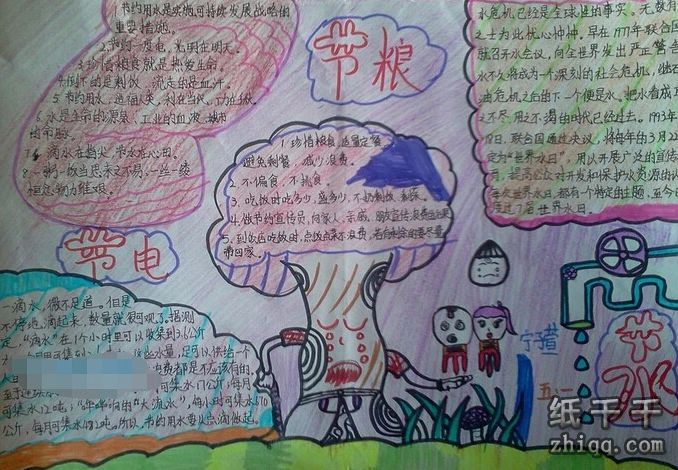 1.节约用水是实施可持续发展战略的
重要措施。
2.节约一度电,光明在明天。
3.珍惜粮食就是热发生命。
4.倒下的是剩饭,流走的是血汗。
5.节约用水,造福人类,利在当代,功在千秋。
6.水是生命的源泉、工业的血液、城市
的命脉。
7.滴水在指尖,节水在心田。
8.一粥一饭当思来之不易,一丝一缕
恒念物力维艰。
节粮
水危机已经是全球性的事实。无数有
之士为此忧心忡忡。早在1977年联合国
就召开水会议,向全世界发出严正警告
水不久将成为一个深刻的社会危机,继石
油危机之后的下一个便是水。把水看成取
之不尽、用之不竭的时代已经过去。1993年
18日,联合国通过决议,将每年的3月22
定为“世界水日”,用以开展广泛的宣传
提高公众对开发和保护水资源的认
每次世界水日,都有个特定的主题,至今已
度过了 世界水日。
1.珍惜粮食,适量定餐
避免剩餐,减少浪费。
2.不偏食,不挑食
3.吃饭时吃多少,盛多少,不扔剩饭、剩菜。
4.做节约宣传员,向家人、亲戚、朋友宣传浪费的后果
5.到饭店吃饭时,点饭点菜不浪费,若有剩余的要尽量
带回家。
节电
一滴水,微不足道。但是
不停地滴起来,数量就很可观了。据测
定,“滴水”在1个小时里可以收集到3.6公斤
月可集到 这些水量,足可以供给一个
费都是不应该有的。
可集水17公斤,每月
可集水12吨;“哗哗响的”大流水”,每小时可集水670
公斤,每月可集水482吨。所以,节约用水要从点滴做起。
五、一
节水
纸千千
zhiqq.com